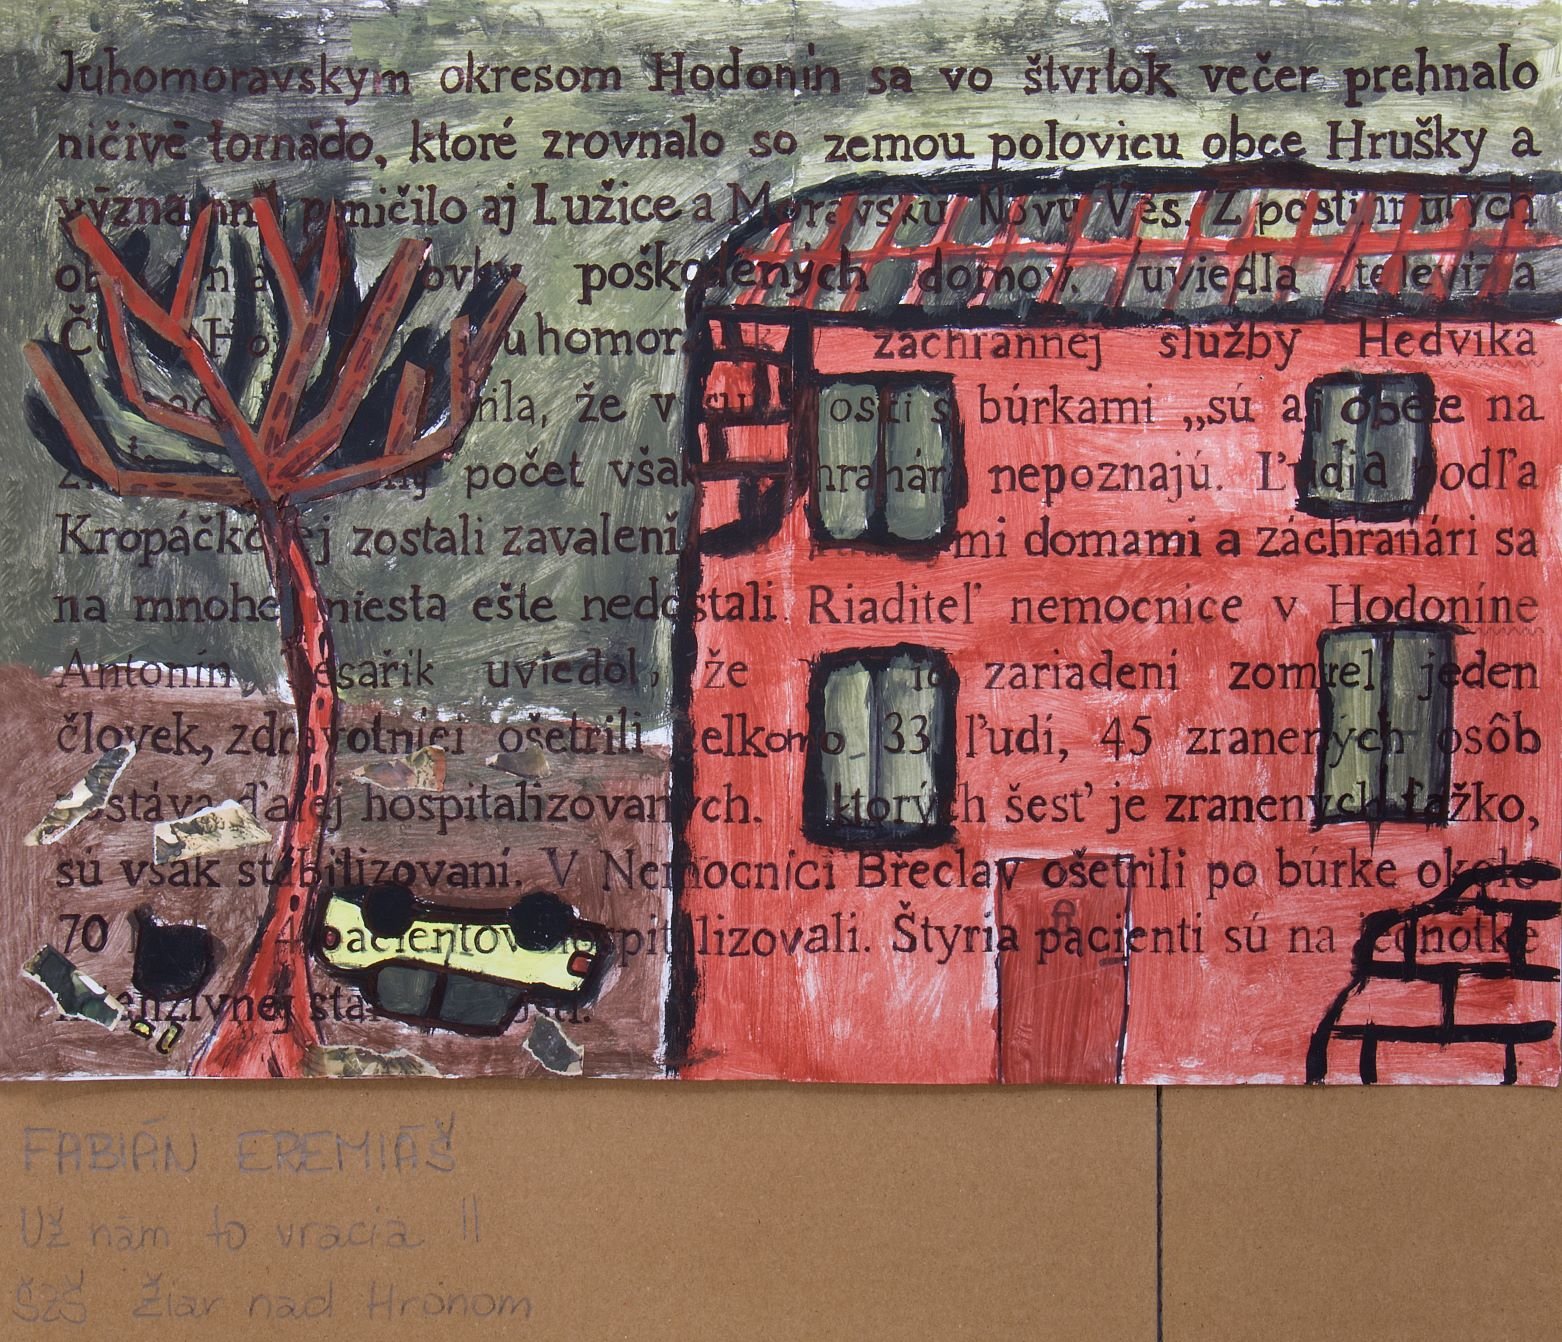 Juhomoravskym okresom Hodonín sa vo štvrtok večer prehnalo
ničivé tornádo, ktoré zrovnalo so zemou polovicu obce Hrušky a
význa poničilo aj Lužice a Moravskú Novú Ves. Z postihnutých
poškodených domov, uviedla televízia
uhomor záchrannej služby Hedvika
že v su osti s búrkami „sú aj obete na
počet však nepoznajú. Ľudia podľa
Kropáčkovej zostali zavalení mi domami a záchranári sa
na mnohé miesta ešte nedostali. Riaditeľ nemocnice v Hodoníne
Antonín Tesařík uviedol, že zariadení zomrel jeden
človek, zdravotníci ošetrili celkomo 33 ľudí, 45 zranených osôb
zostáva ďalej hospitalizovaných. ktorých šesť je zranených ťažko,
sú však stabilizovaní. V Nemocnici Břeclav ošetrili po búrke okolo
70 4 pacientov hospitalizovali. Štyria pacienti sú na jednotke
intenzívnej sta osti.
FABIÁN EREMIÁŠ
Už nám to vracia !!
ŠZŠ Žiar nad Hronom